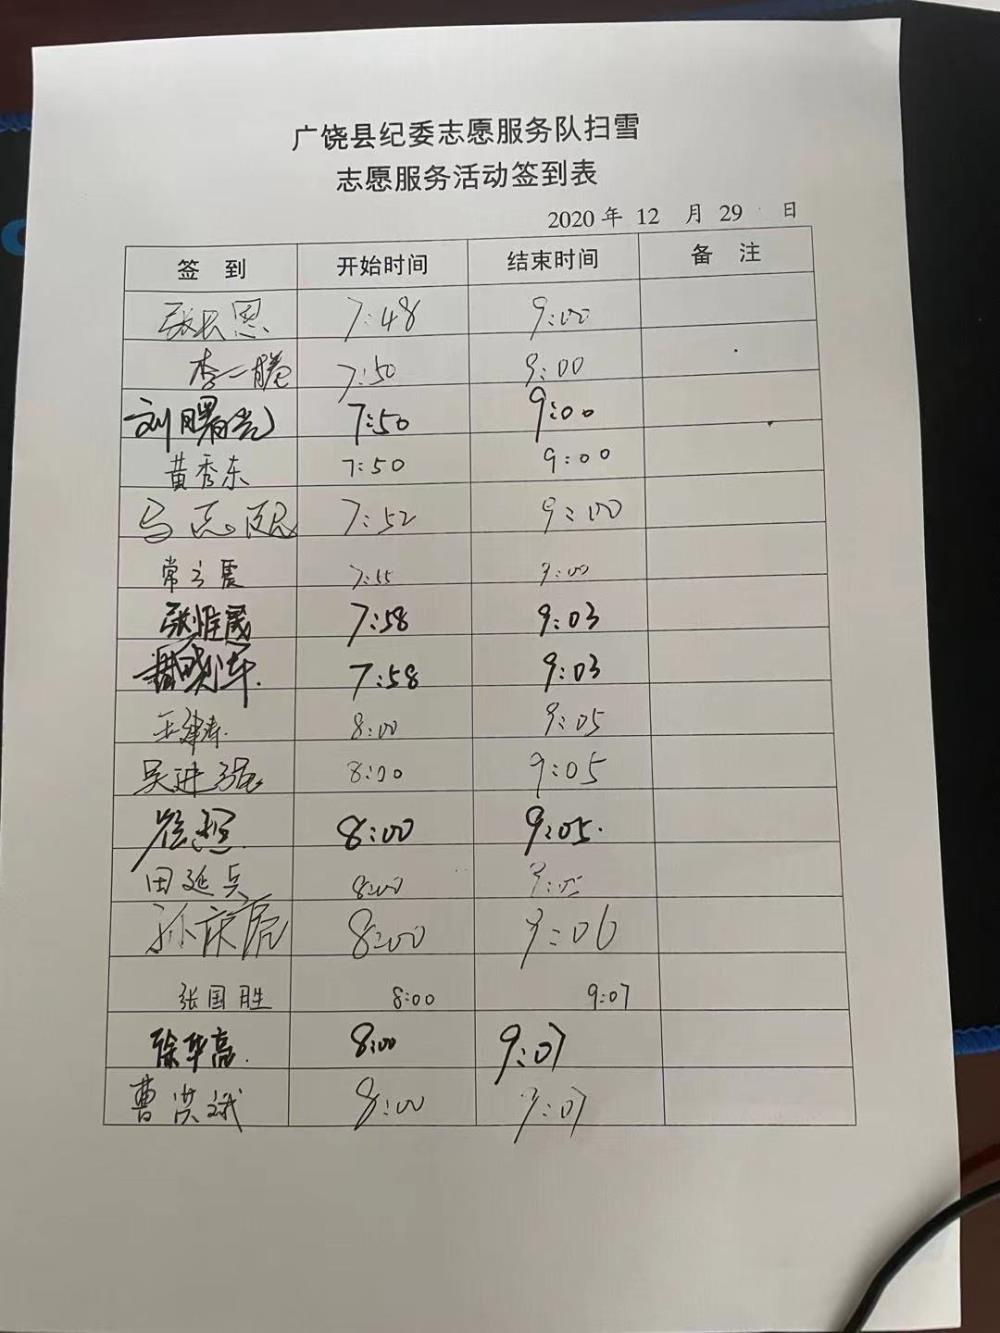 广饶县纪委志愿服务队扫雪
志愿服务活动签到表
2020 年 12 月 29 日
签 到 开始时间 结束时间 备 注
张长恩 7:48 9:00
李一腾 7:50 9:00
刘曙光 7:50 9:00
黄秀东 7:50 9:00
马志 7:52 9:00
常立震 7:55 9:00
张维晟 7:58 9:03
7:58 9:03
王 8:00 9:05
吴进强 8:00 9:05
8:00 9:05.
田延兵 8:00 9:05
孙庆虎 8:00 9:06
张国胜 8:00 9:07
徐华高. 8:00 9:07
曹洪斌 8:00 9:07